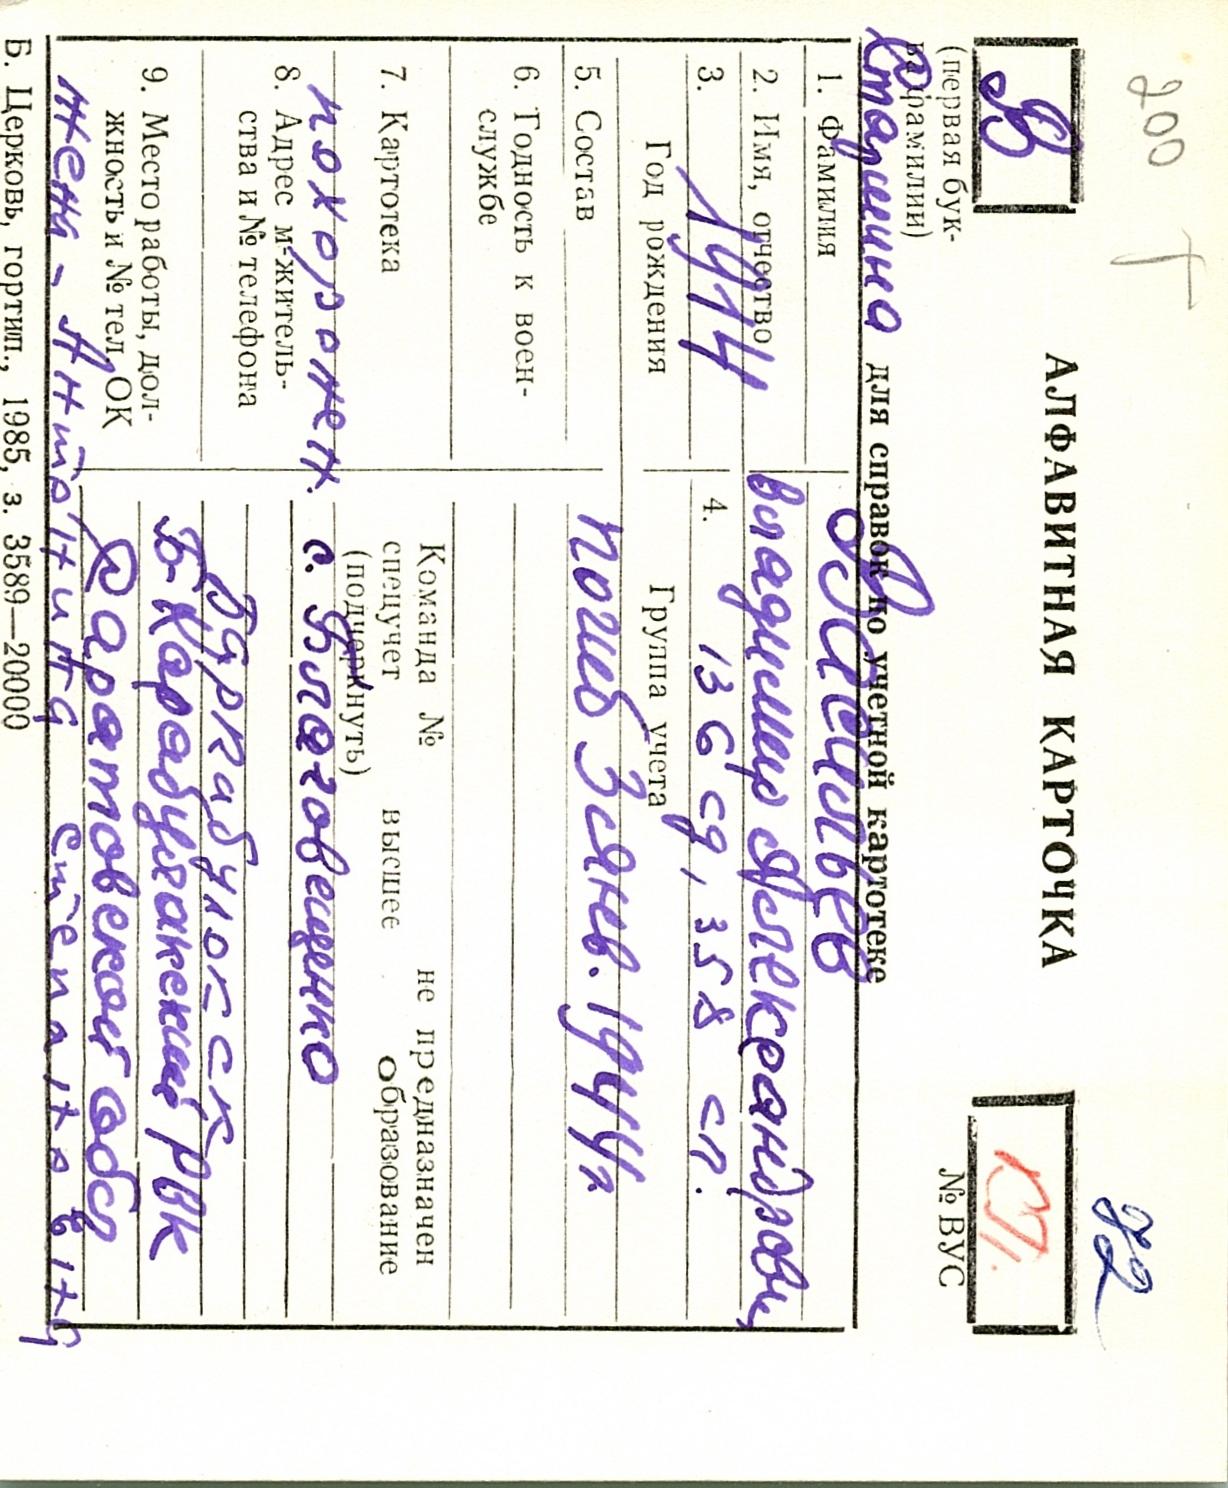 200 Т
92
АЛФАВИТНАЯ КАРТОЧКА
В
(первая бук-
ва фамилии)
КП.
№ ВУС
Старшина для справок по учетной картотеке
1. Фамилия
Васильев
2. Имя, отчество Владимир Александрович
3. 1914
Год рождения
4. 136 сд, 358 сп.
Группа учета
5. Состав погиб 3 янв. 1944 г
6. Годность к воен-
службе
7. Картотека
Команда № не предназначен
спецучет высшее образование
(подчеркнуть)
похоронен. с. Благовещенко
8. Адрес м-житель-
ства и № телефона
9. Место работы, дол-
жность и № тел ОК
Б-Карабулакский РВК
Саратовской обл
жена - Антонина Степановна
Б. Церковь, гортип., 1985, з. 3589—20000